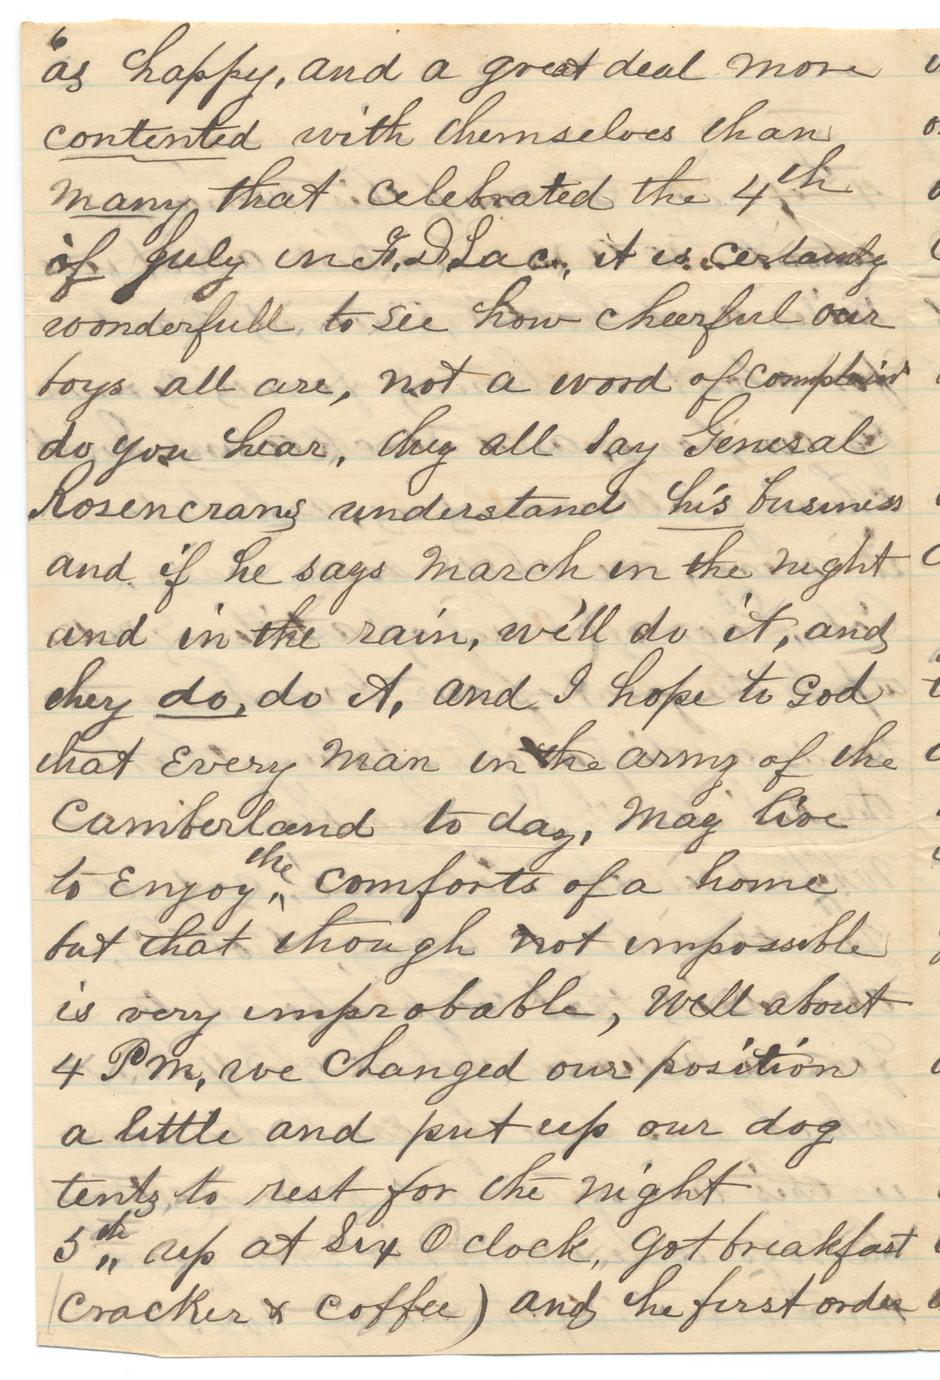 as happy, and a great deal more
contented with themselves than
many that celebrated the 4th
of July in F. D Lac., it is certainly
wonderfull to see how cheerful our
boys all are, not a word of complaint
do you hear, they all say General
Rosencrans understand his business
and if he says march in the night
and in the rain, we'll do it, and
they do, do it, and I hope to God
that Every Man in the army of the
Cumberland to day, May live
to Enjoy the comforts of a home
but that though not impossible
is very improbable, Well about
4 PM, we changed our position
a little and put up our dog
tents, to rest for the night
5th up at Six O clock, got breakfast
(cracker & coffee) and the first order